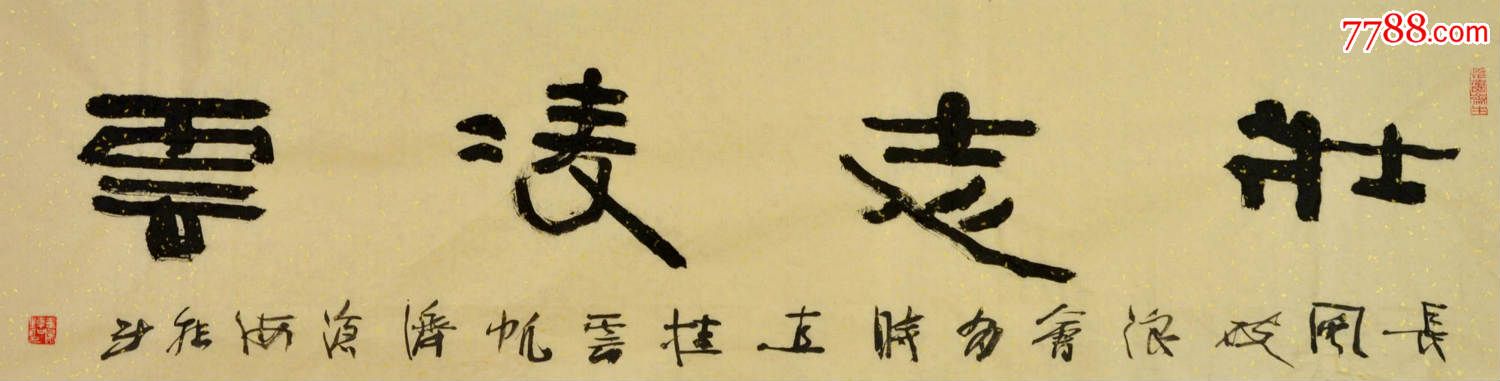 7788.com
壯志凌雲
長風破浪會有時直挂雲帆濟滄海